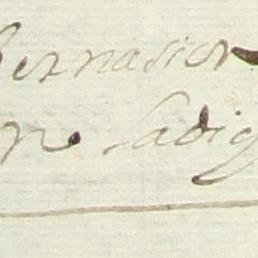 Bernasion
n ladig